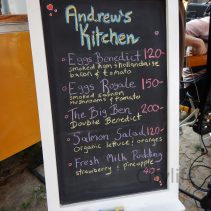 Andrew's
Kitchen
Eggs Benedict 120-
smoked ham + hollandaise
bacon & tomato
Eggs Royale 150-
smoked salmon
mushrooms & tomato
The Big Ben 200-
Double Benedict
Salmon Salad 120-
organic lettuce & oranges
Fresh Milk Pudding
strawberry & pineapple 40-